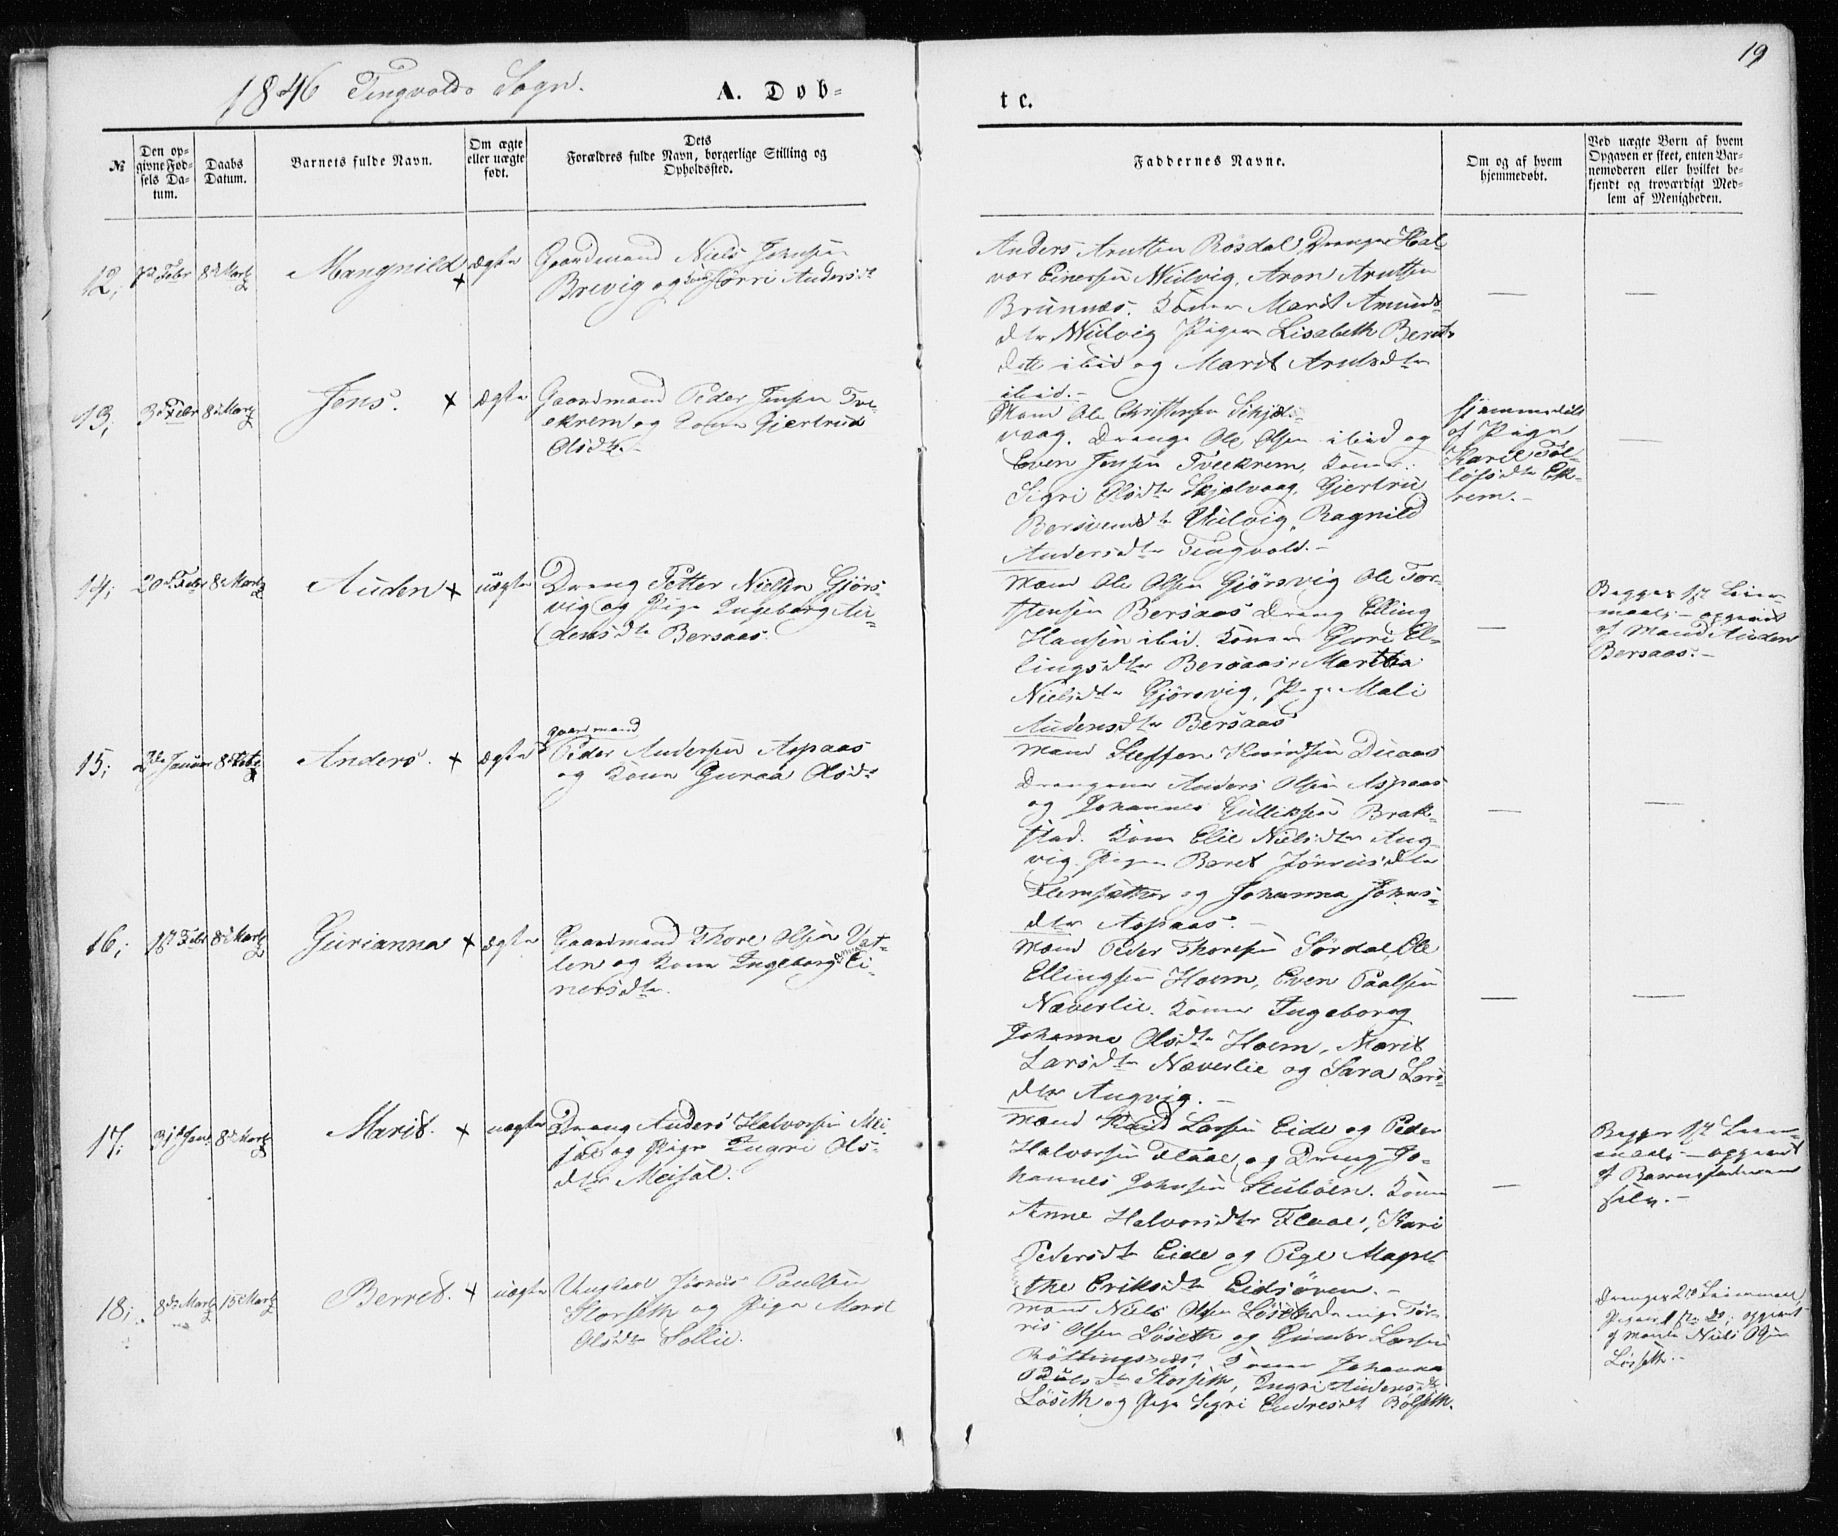 19
1846 Tingvolds Sogn.
A. Døb-
te.
№
Den op-
givne Fød-
sels Da-
tum.
Daabs
Datum.
Barnets fulde Navn.
Om ægte
eller uægte
født.
Dets
Forældres fulde Navn, borgerlige Stilling og
Opholdssted.
Faddernes Navne.
Om og af hvem
hjemmedøbt.
Ved uægte Børn af hvem
Opgaven er skeet, enten Bar-
nemoderen eller hvilket be-
kjendt og troværdigt Med-
lem af Menigheden.
12;
Febr
8d Martz
Mangnild
ægte
Gaardmand Niels Johnsen
Brevig og Kone Sørri Andersdt
Anders Arntsen Rösdal, Drenge Hal
vor Einersen Wulvig, Aron Arntsen
Brunnæs. Koner Marit Amunds
dtr Wulvig Piger Lisabeth Beret
dtr ibid og Marit Arntsdtr
ibid.-
13;
3d Febr
8d Martz
Jens.
ægte
Gaardmand Peder Jensen Tve-
ekrem og Kone Gjertrud
Olsdtr.-
Mand Ole Christensen Skjøl-
vaag. Drenge Ole Olsen ibid og
Even Jensen Tveekrem, Koner:
Sigri Olsdtr Skjølvaag, Gjertru
Bersvendtr Wulvig, Ragnild
Andersdtr Tingvold.-
Hjemmedøbt
af Pige
Karel Tol-
lofsdtr Ek-
rem.-
14;
20d Febr
8d Martz
Auden
uægte
Dreng Petter Nielsen Gjørs-
vig og Pige Ingeborg Au-
densdtr Bersaas.
Mand Ole Olsen Gjørsvig Ole Tor-
stensen Bersaas Dreng Elling
Hansen ibid. Koner Guri El-
lingsdtr Bersaas, Martha
Nielsdtr Gjørsvig, Pige Mali
Audensdtr Bersaas
Begges 1st Leier-
maal;- opgivet
af Mand Auden
Bersaas.-
15;
Januar
8d Febr
Anders.
ægte
gaardmand
Peder Andersen Aspaas
og Kone Guraa Olsdt
Mand Steffen Knudsen Duaas
Drengene Anders Olsen Aspaas
og Johannes Gulliksen Brak-
stad. Kone Elie Nielsdtr Ang-
vig. Piger Beret Jørrisdtr
Flemsæther og Johanna Johns-
dtr Aspaas.-
16;
1st Febr
8d Martz
Gurianna
ægte
Gaardmand Thore Olsen Vat-
ten og Kone Ingeborg Ei-
nersdtr.
Mand Peder Thoresen Sørdal, Ole
Ellingsen Hoem, Even Paalsen
Næverlie. Koner Ingeborg
Johanna Olsdtr Hoem, Marit
Larsdtr Næverlie og Sara Lars-
dtr Angvig.-
17;
31st Jan
8d Martz
Marit.
uægte
Dreng Anders Halvorsen Mei-
sal og Pige Ingri Ols-
dtr Meisal.
Mand Knud Larsen Eide og Peder
Halvorsen Flaae, og Dreng Jo-
hannes Johnsen Stubøen. Kone
Anne Halvorsdtr Flaae, Kari
Pedersdtr Eide og Pige Magre-
the Eriksdtr Eidsøren.-
Begges 1st Leier-
maal;- opgivet
af Barnefaderen
selv.-
18;
8d Martz
15 Martz
Berret.
uægte
Ungkarl Jörris Paulsen
Storseth og Pige Marit
Olsdtr Sollie.
Mand Niels Olsen Løseth Drenge Tør-
ris Olsen Løseth og Gunder Larsen
Röttingsnæs; Koner Johanna
Paulsdtr Storseth, Ingri Andersdt
Løseth og Pige Sigri Endresdt Bølseth.
Drenges 2d Leiermaal
Piges 1ste do; opgivet
af Mand Niels Olsen
Løseth.-